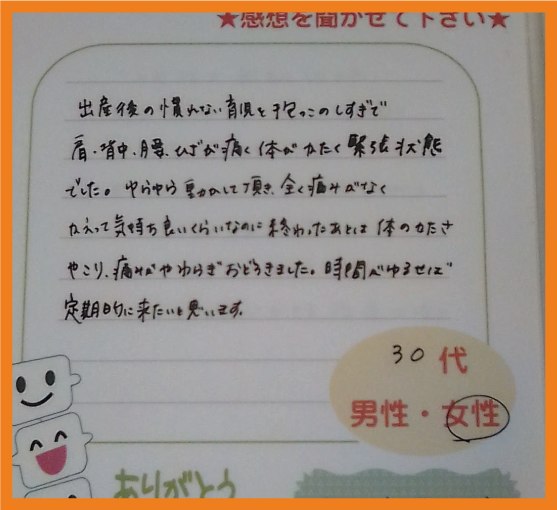 ★感想を聞かせて下さい★
出産後の慣れない育児と抱っこのしすぎで
肩・背中・腰、ひざが痛く体がかたく緊張状態
でした。ゆらゆら動かして頂き、全く痛みがなく
かえって気持ち良いくらいなのに終わったあとは体のかたさ
やこり、痛みがやわらぎおどろきました。時間がゆるせば
定期的に来たいと思います。
30代
男性・女性
ありがとう